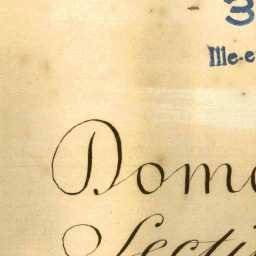 3
Ille-e
Doma
Secti